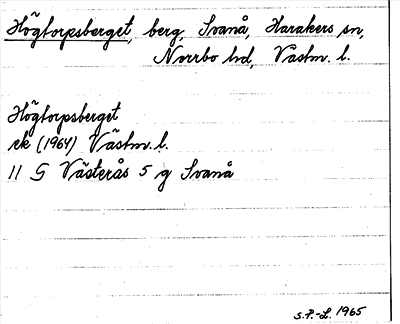 Högtorpsberget, berg, Svanå, Harakers sn,
Norrbo hd, Västm. l.
Högtorpsberget
ek (1964) Västm. l.
11 G Västerås 5 g Svanå
S.P.-L. 1965